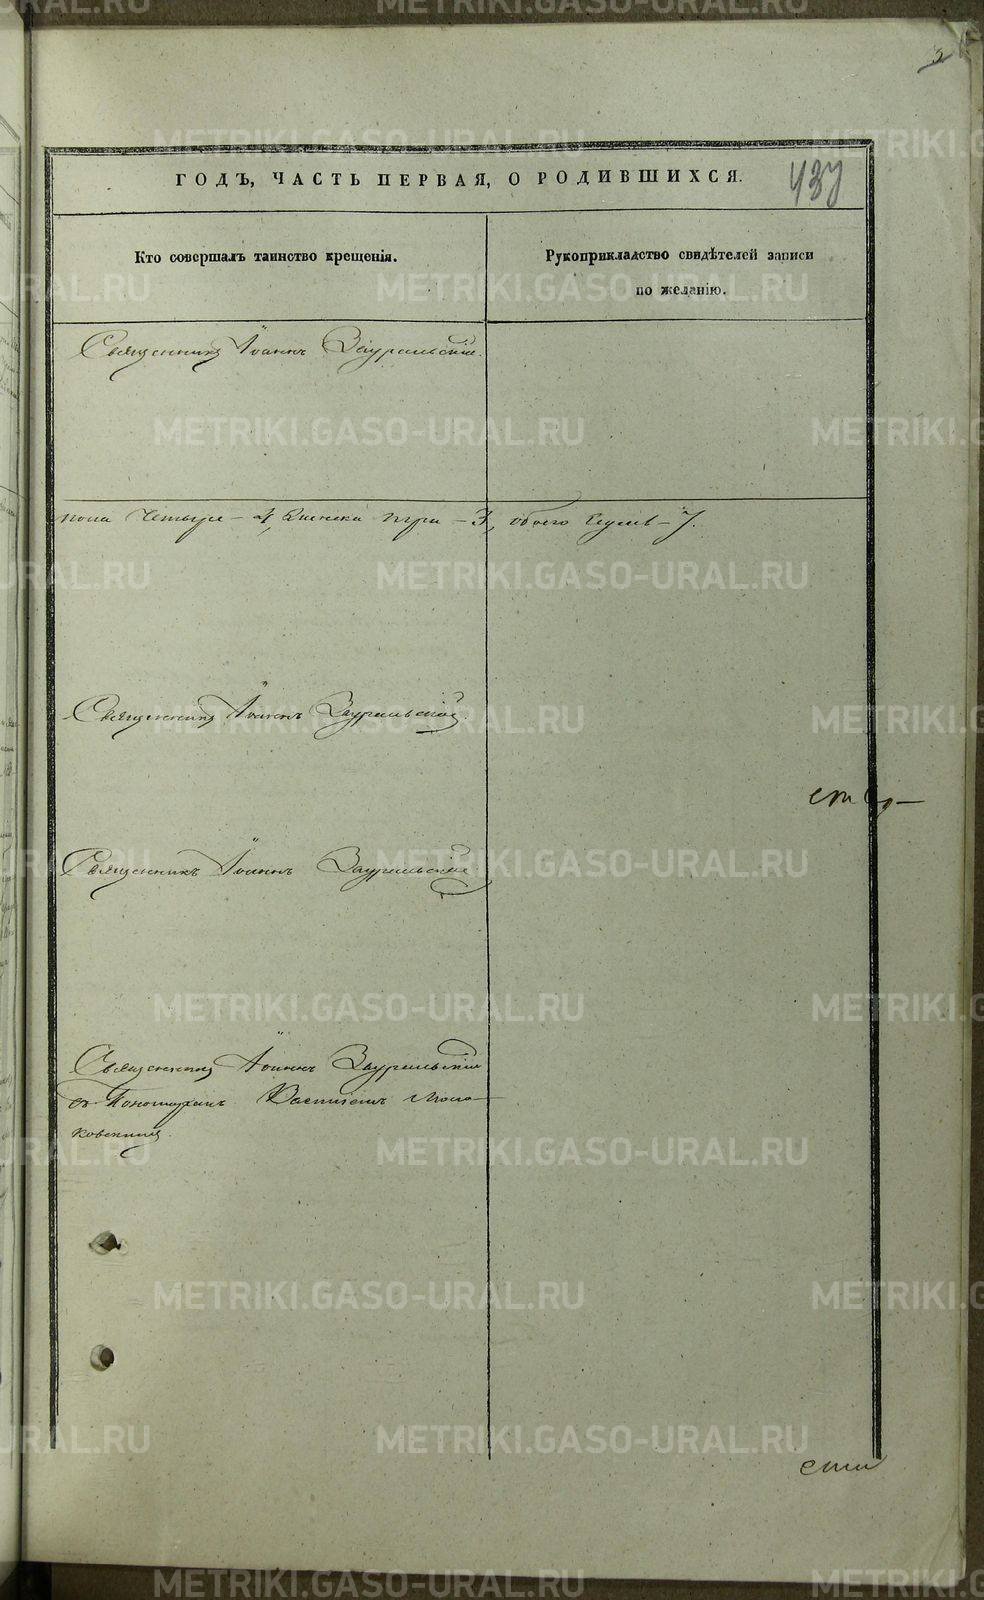 3
ГОДЪ, ЧАСТЬ ПЕРВАЯ, О РОДИВШИХСЯ.
437
Кто совершалъ таинство крещенія.
Рукоприкладство свидѣтелей записи
по желанію.
Священникъ Іоаннъ Зауральскій.
пола четыре - 4, женска три - 3, обоего
Священникъ Іоаннъ Зауральскій.
Священникъ Іоаннъ Зауральскій
Священникъ Іоаннъ Зауральскій
съ Пономаремъ
METRIKI.GASO-URAL.RU